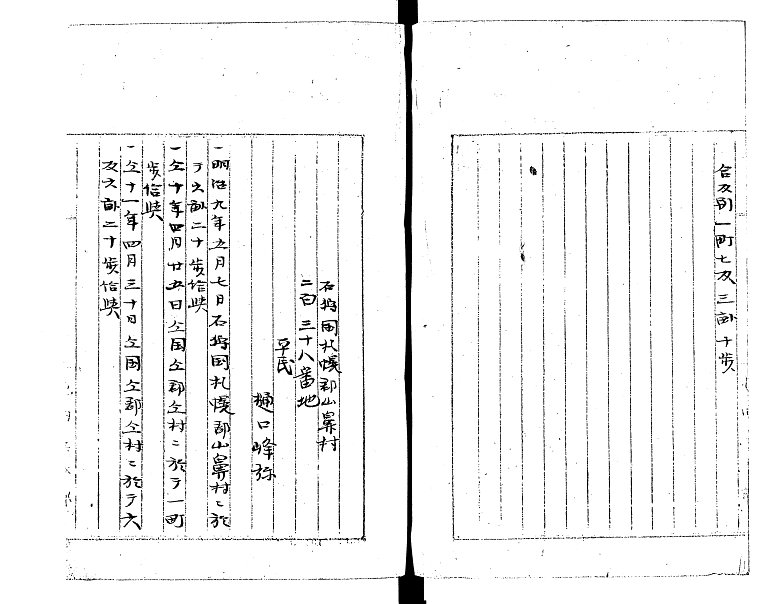 合反別一町七反三畝十歩
石狩国札幌郡山鼻村
二百三十八番地
平民
樋口峰弥
一明治九年五月七日石狩国札幌郡山鼻村ニ於
テ六畝二十歩
一仝十年四月廿五日仝国仝郡仝村ニ於テ一町
歩
一仝十一年四月三十日仝国仝郡仝村ニ於テ六
反六畝二十歩